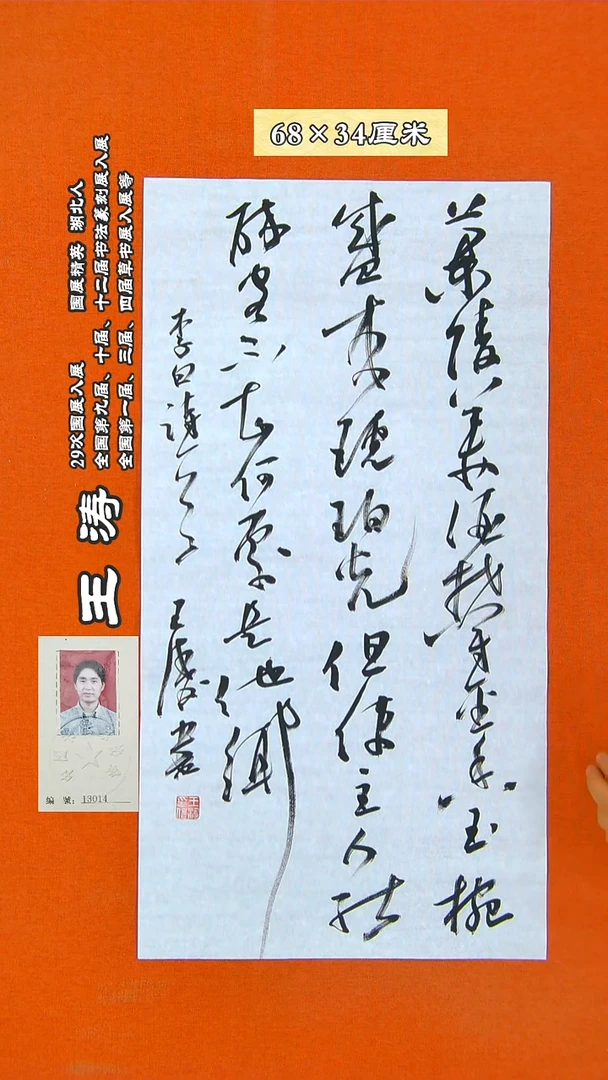 68×34厘米
蘭陵美酒鬱金香玉椀
盛来琥珀光但使主人能
醉客不知何處是他鄉
李白詩一首 王濤書
29次国展入展 国展精英 湖北人
全国第九届、十届、十二届书法篆刻展入展
全国第一届、三届、四届草书展入展等
王涛
编 号：13014